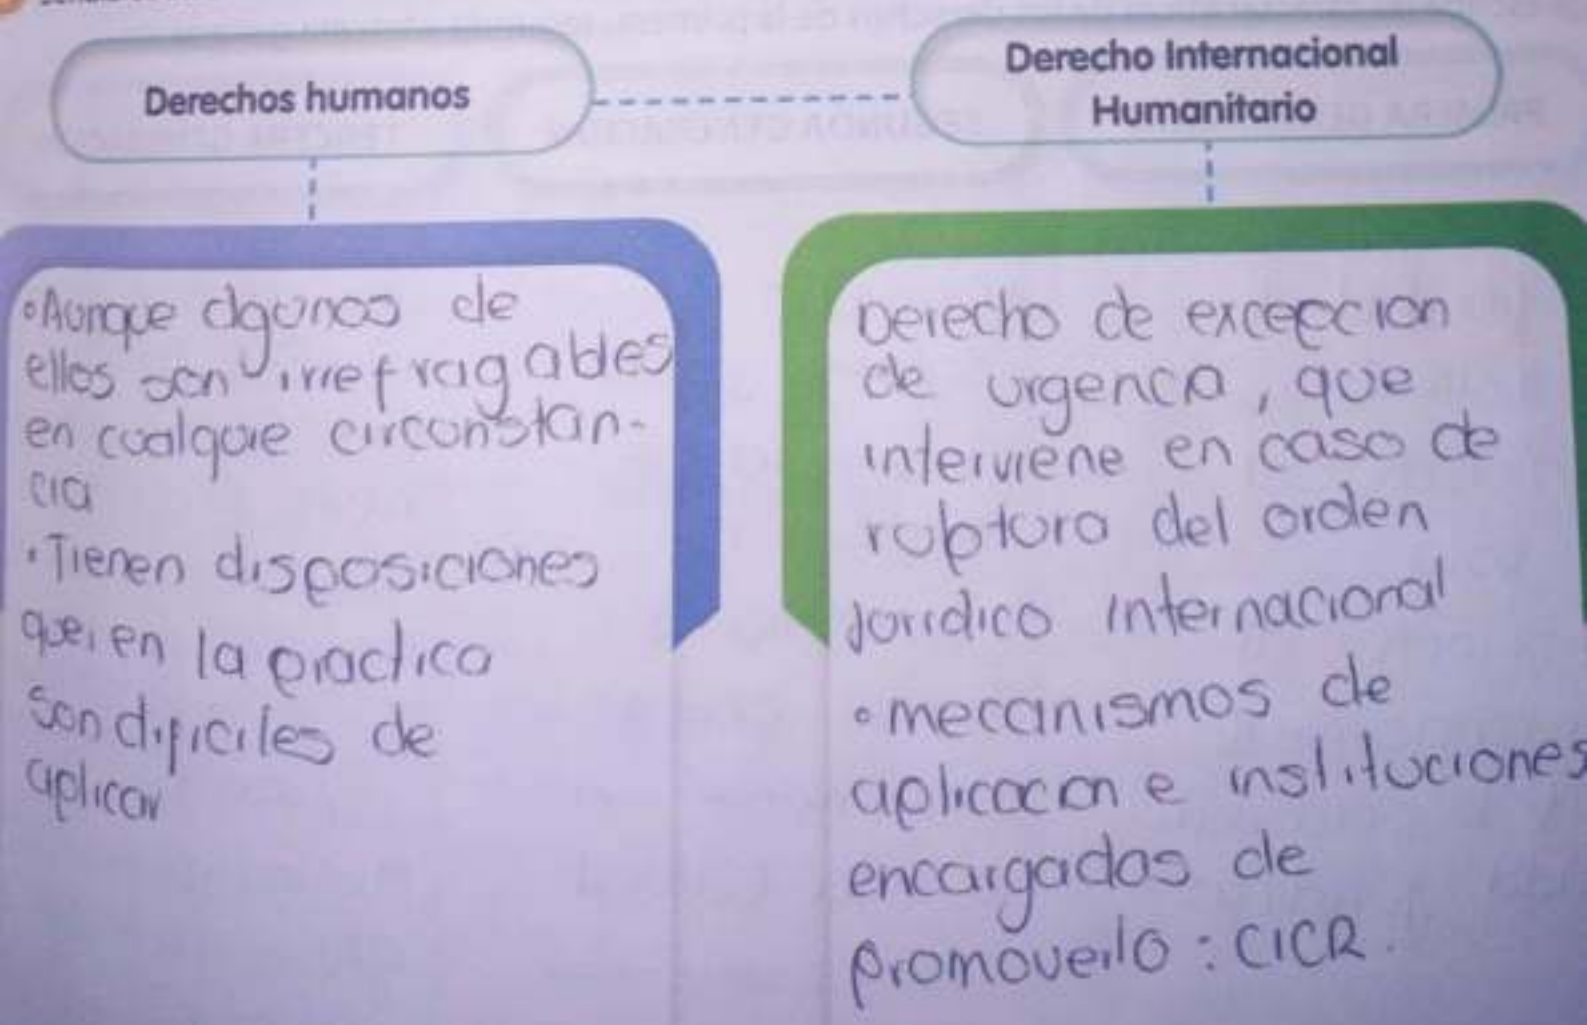 Derechos humanos
Derecho Internacional
Humanitario
•Aunque algunos de
ellos son irrefragables
en cualquie circunstan-
cia
•Tienen disposiciones
que, en la practica
son dificiles de
aplicar
Derecho de excepcion
de urgencia, que
interviene en caso de
rubtura del orden
Juridico internacional
•mecanismos de
aplicacion e instituciones
encargados de
promoverlo : CICR.